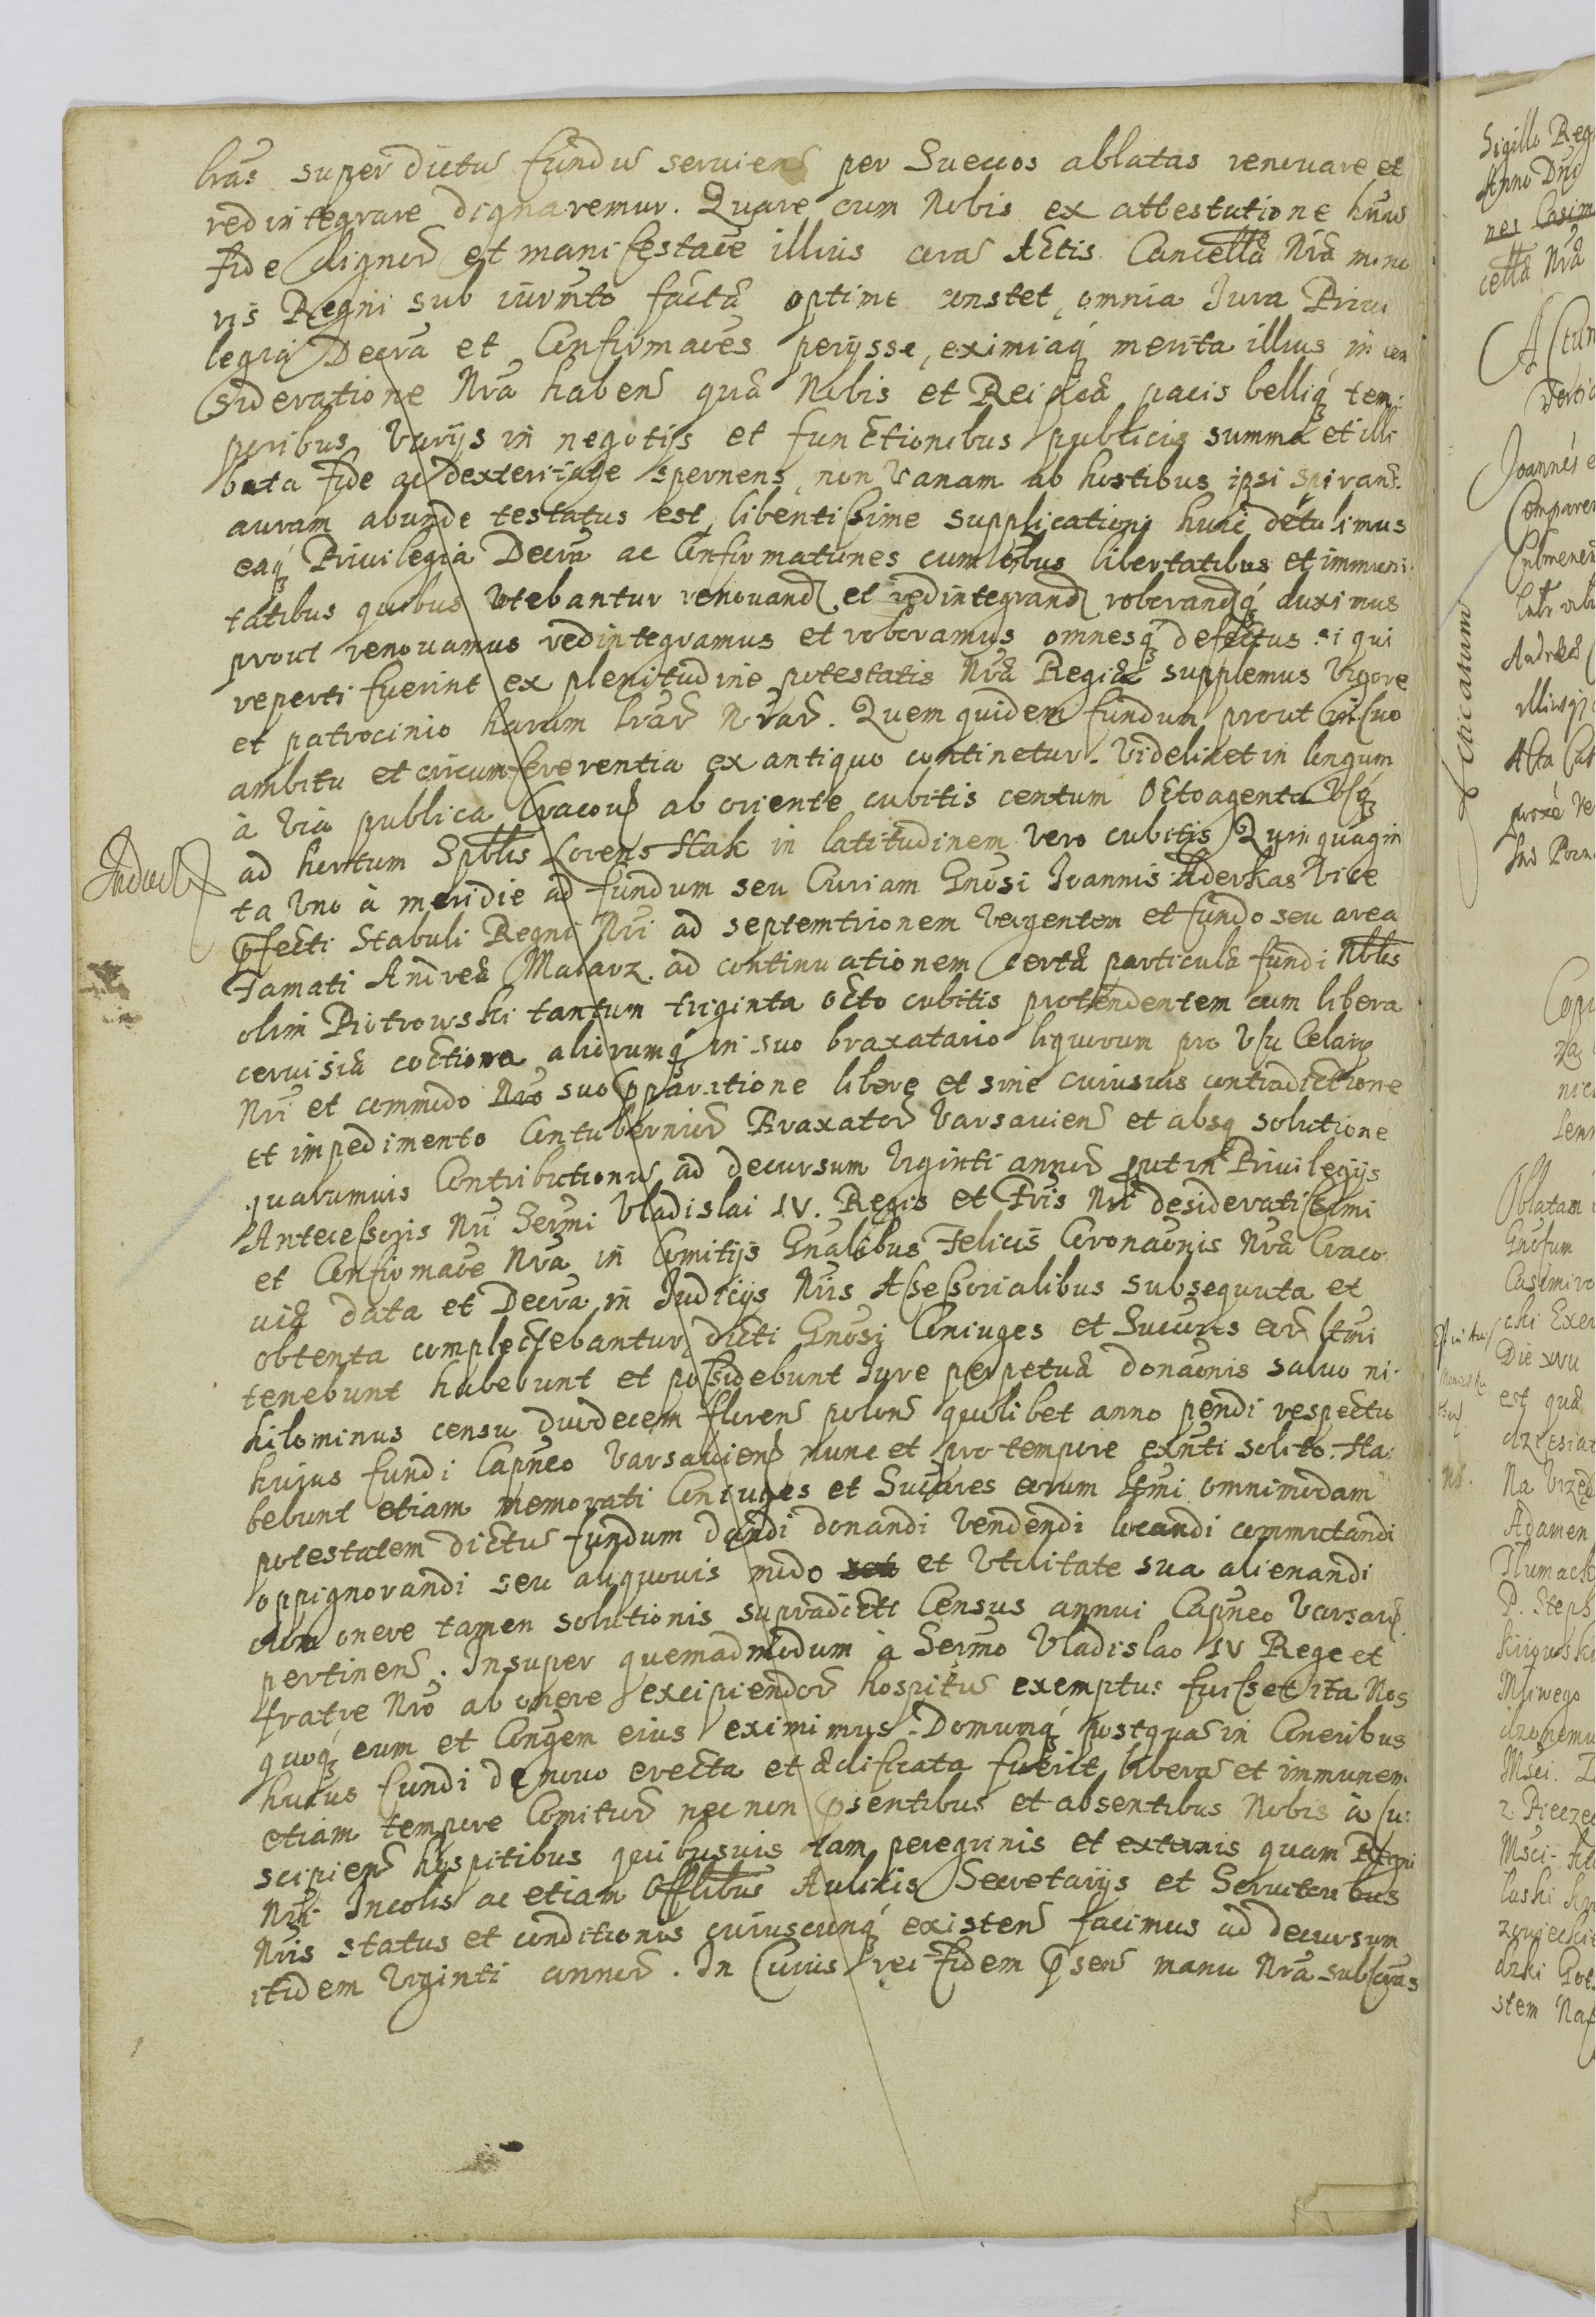 lras super dictu fundu seruien per Suecos ablatas renouare et
redintegrare dignaremur. Quare cum Nobis ex attestatione huius
fide dignor et manifestaõe illius cora Actis Cancella Nra mino
ris Regni sub iurmto facta optime constet, omnia Jura Priui
legia Decra et Confirmaões perysse, eximiaq merita illius in con
sideratione Nra haben qua Nobis et Reipca pacis belliq tem
poribus varijs in negotijs et functionibus publicis summa et illi
bata fide ac dexteritate spernens, non Vanam ab hostibus ipsi spiran
auram abunde testatus est, libentissime supplicationi huic detulimus
eaq Priuilegia Decra ac Confirmationes cum oibus libertatibus et immuni
tatibus quibus Vtebantur renouand et redintegrand roborandq duximus
prout renouamus redintegramus et roboramus omnesq defectus si qui
reperti fuerint ex plenitudine potestatis Nra Regia supplemus Vigore
et patrocinio harum lrar Nrar. Quem quidem fundum prout in suo
ambitu et circumfererentia ex antiquo continetur. Videlicet in longum
à Via publica Cracou ab oriente cubitis centum Octoagenta Vsq
ad hortum Spblis Lorens Hak in latitudinem vero cubitis Quinquagin
ta Vno à meridie ad fundum seu Curiam Gnosi Ioannis Aderkas Vice
pfecti Stabuli Regni Nri ad septemtrionem Vergentem et fundo seu area
Famati Andrea Malarz. ad continuationem certa particula fundi Nblis
olim Piotrowski tantum triginta octo cubitis protendentem cum libera
ceruisia coctione aliorumq in suo braxatorio liquorum pro Vsu Celary
Nri et commodo Nro suo pparatione libere et sine cuiusuis contradictione
et impedimento Contubernior Braxator Varsauien et absq solutione
quarumuis Contributionu ad decursum Viginti annor put in Priuilegijs
Antecessoris Nri Sermi Vladislai IV. Regis et Fris Nri desideratissimi
et Confirmaõe Nra in Comitijs Gnalibus Felicis Coronaõnis Nra Craco
uia data et Decra in Judicijs Nris Assessorialibus subsequuta et
obtenta complectebantur, dicti Gnosi Coniuges et Succres eor ltmi
tenebunt habebunt et possidebunt Iure perpetua donaõnis saluo ni
hilominus censu duodecem floren polon quolibet anno pendi respectu
hujus fundi Capneo Varsauien nunc et pro tempore exnti solito. Ha
bebunt etiam memorati Coniuges et Succres eorum ltmi omnimodam
potestatem dictu fundum dandi donandi vendendi locandi commutandi
oppignorandi seu aliquouis modo et Vtilitate sua alienandi
cum onere tamen solutionis supradicti Census annui Capneo Varsau
pertinen. Insuper quemadmodum à Sermo Vladislao IV Rege et
fratre Nro ab onere excipiendor hospitu exemptus fuisset ita Nos
quoq eum et Congem eius eximimus. Domumq postqua in Coneribus
huius fundi de nouo erecta et ædificata fuerit, libera et immunem
etiam tempore Comitior nec non psentibus et absentibus Nobis à su
scipien hospitibus quibusuis tam peregrinis et externis quam Regni
Nri Incolis ac etiam Offlibus Aulicis Secretarijs et Seruitoribus
Nris status et conditionis cuiuscunq existen facimus ad decursum
itidem Viginti annor. In Cuius rei fidem psen manu Nra subscras
Induct
Sigillo Reg
Anno Dni
nes Casim
cella Nra
Joannes e
Comparen
Andreas
Acta Cas
Extricatum
Oblatam
Gnosum
Casimiro
Die xvii
est qua
Na Vrzęd
Adamen
P. Steph
Msci
stem Na